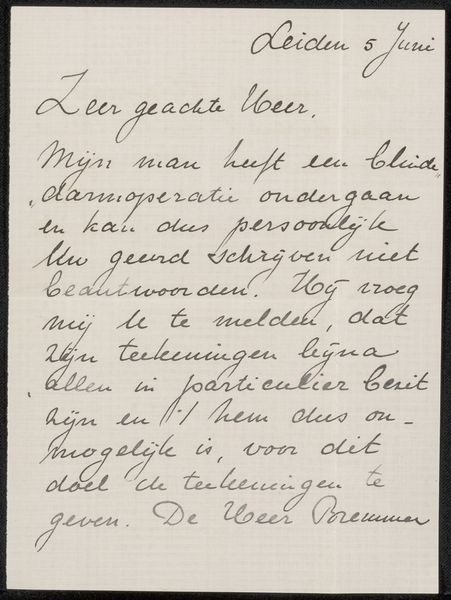 Leiden 5 Juni
Zeer geachte Heer,
Mijn man heeft een blinde„
„darmoperatie ondergaan
en kan dus persoonlijk
Uw geëerd schrijven niet
beantwoorden. Hij vroeg
mij U te melden, dat
zijn teekeningen bijna
allen in particulier bezit
zijn en 't hem dus on-
mogelijk is, voor dit
doel de teekeningen te
geven. De Heer Bremmer